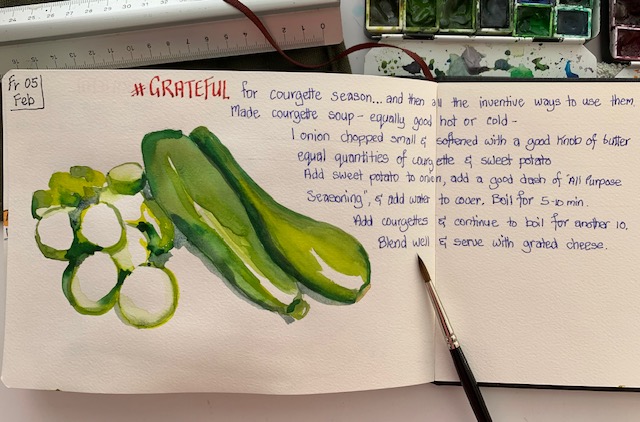 Fr 05
Feb
#GRATEFUL for courgette season... and then all the inventive ways to use them.
Made courgette soup - equally good hot or cold -
1 onion chopped small & softened with a good knob of butter
equal quantities of courgette & sweet potato
Add sweet potato to onion, add a good dash of "All Purpose
Seasoning", & add water to cover. Boil for 5-10 min.
Add courgettes & continue to boil for another 10.
Blend well & serve with grated cheese.